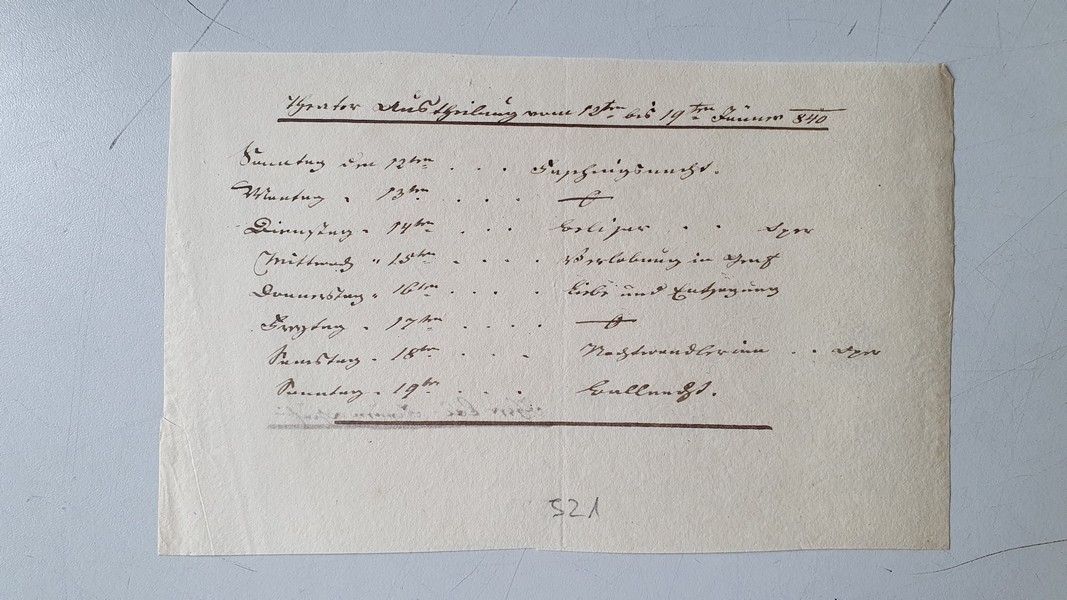 Theater Austheilung vom 12ten bis 19ten Jänner 840
Sonntag den 12ten . . . Faschingsnacht.
Montag " 13ten . . . .
Dienstag " 14ten . . . Belisar . . Oper
Mittwoch " 15ten . . . . Verlobung in Genf
Donnerstag " 16ten . . . . Liebe und Entsagung
Freytag " 17ten . . . .
Samstag " 18ten . . . Nachtwandlerinn . . Oper
Sonntag " 19ten . . . Ballnacht.
521